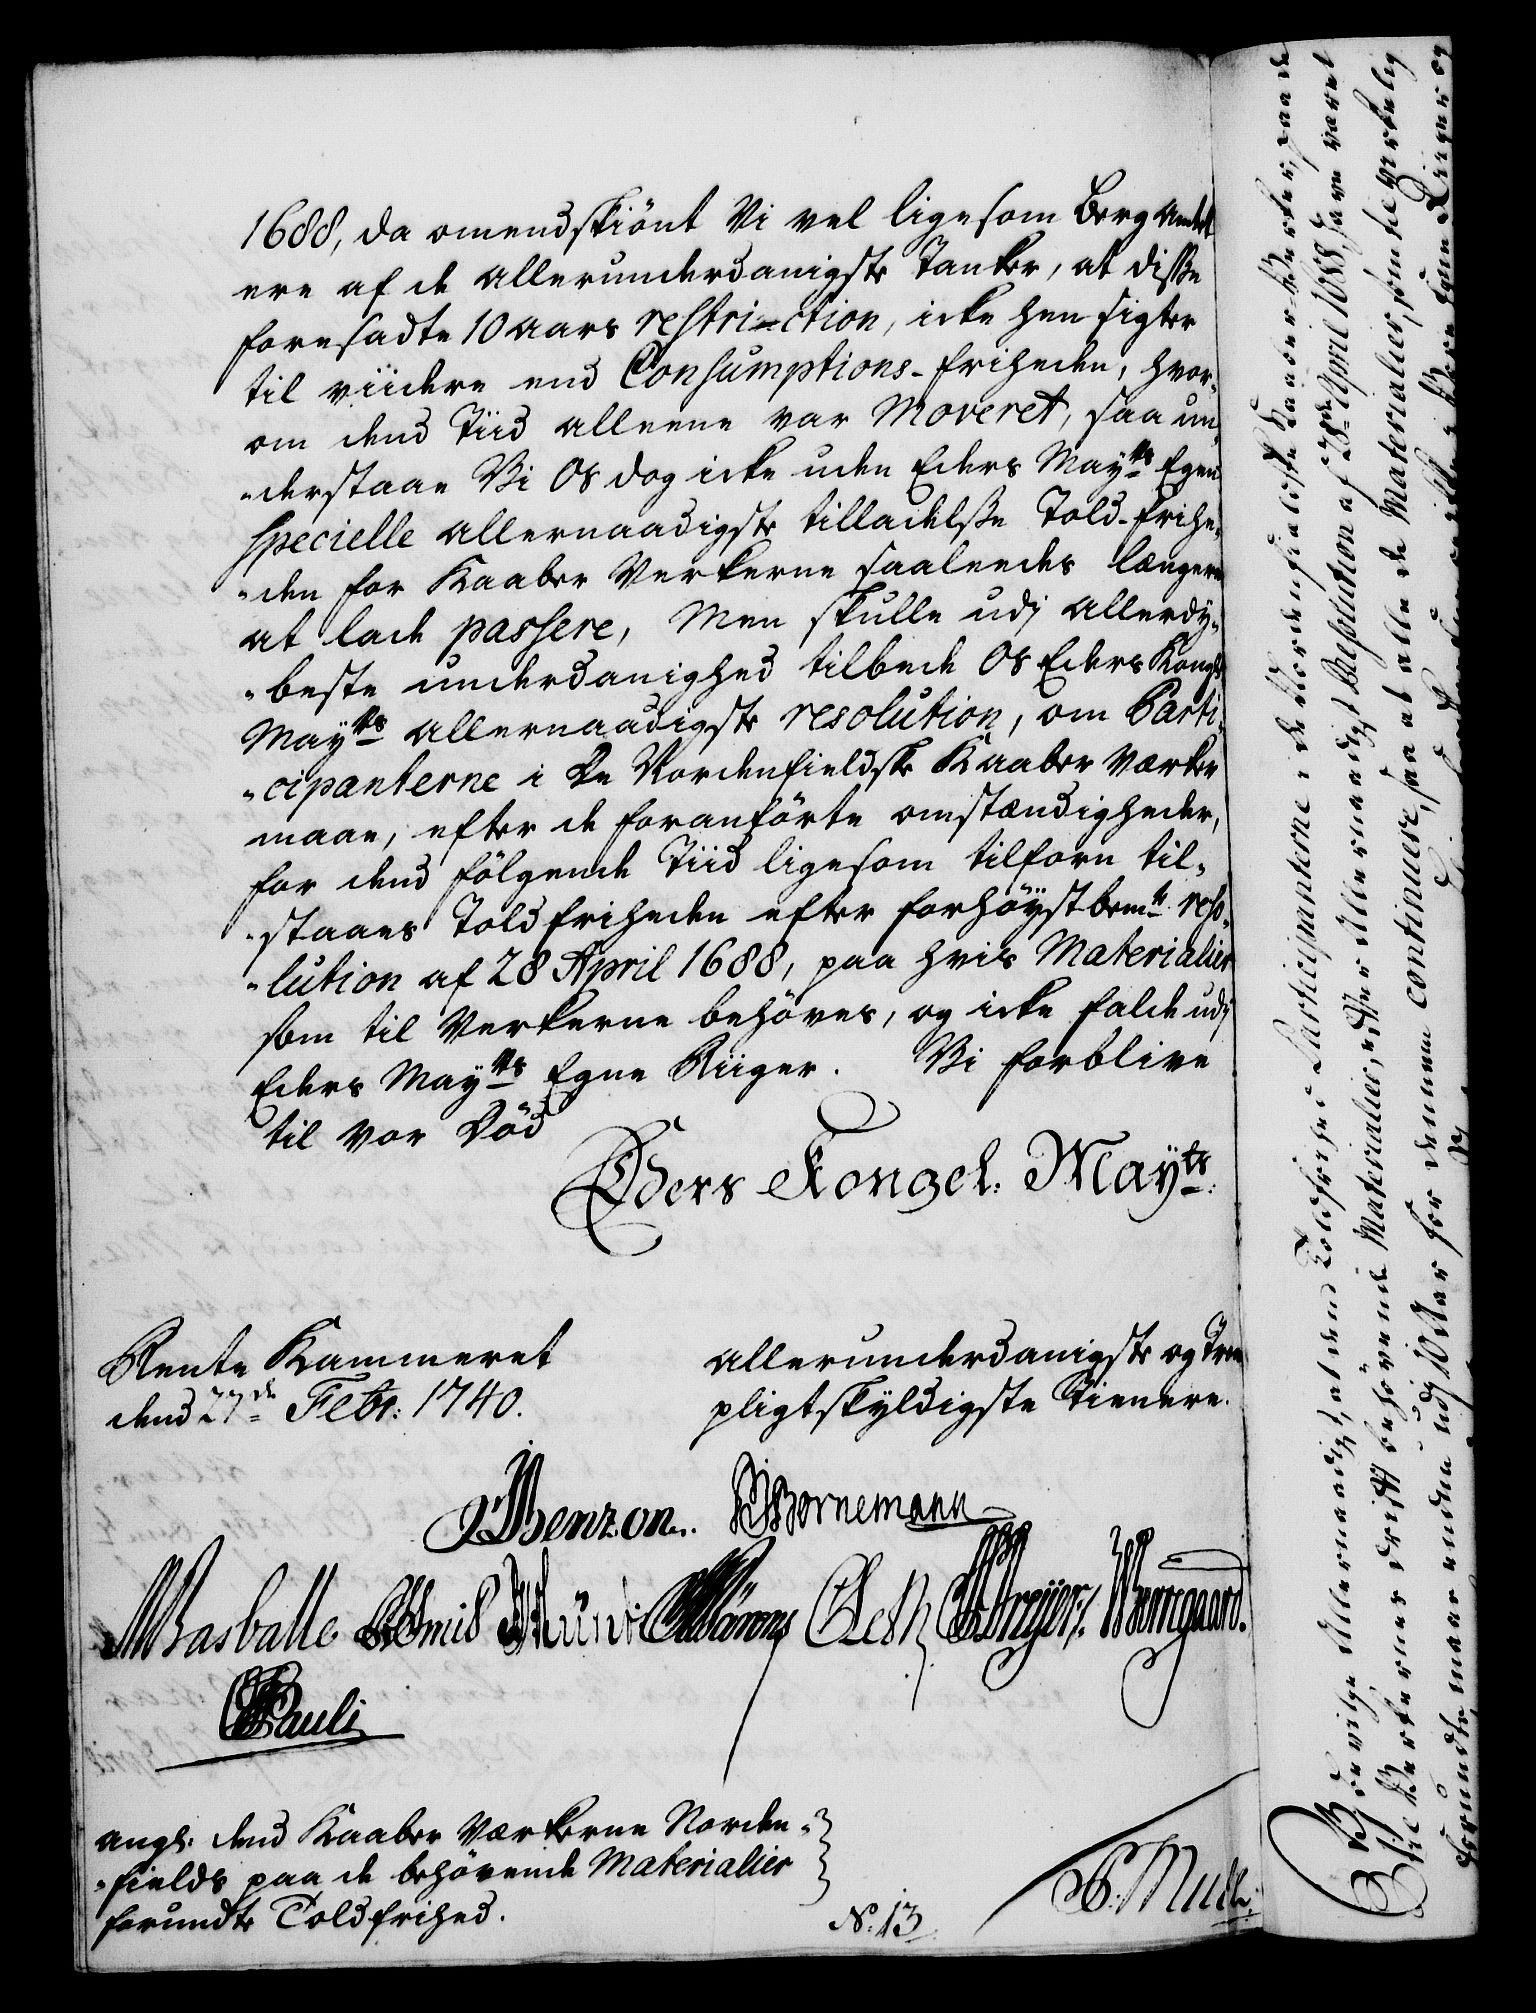 1688, da omendskiönt Vi vel ligesom Berg Amtet
ere af de allerunderdanigste Tanker, at disse
foresadte 10 aars restri-ction, icke hensigter
til viidere end Consumptions-friheden, hvor-
om dend Tiid alleene var Moveret, saa un-
-derstaae Vi Os dog icke uden Eders Mayts Egen
specielle allernaadigste tilladelsse Told-frihe-
-den for Kaaber Verkerne saaleedes længere
at lade passere, Men skulle udj allerdy-
-beste underdanighed tilbede Os Eders Kongl
Mayts allernaadigste resolution, om Parti-
-cipanterne i De Nordenfieldske Kaaber Værker
maae, efter de foranförte omstændigheder,
for dend fölgende Tiid ligesom tilforn til-
-staaes Toldfriheden efter forhöystbemte reso-
-lution af 28 April 1688, paa hvis Materialier
som til Verkerne behöves, og icke falde udj
Eders Mayts Egne Riiger. Vi forblive
til vor Död
Eders Kongel. Mayts.
Rente Kammeret
dend 27de Febr. 1740.
allerunderdanigste og Troe
pligtskyldigste Tienere.
JBenzon. Bornemann
Basballe
Pauli
angl. dend Kaaber Værkerne Norden-
-fields paa de behövende Materialier
forundte Toldfrihed.
N. 13
Vi bevilge Allernaadigst, at dend Toldfrihed Participanterne i de Nordenfieldske Kaaber-Værker, paa de
til Verkernes drift behövende Materialier, efter Allernaadigst Resolution af 28de April 1688, have været
forundte, maae endnu udj 10 Aar for dennem continuere, saa at alle de Materialier, som